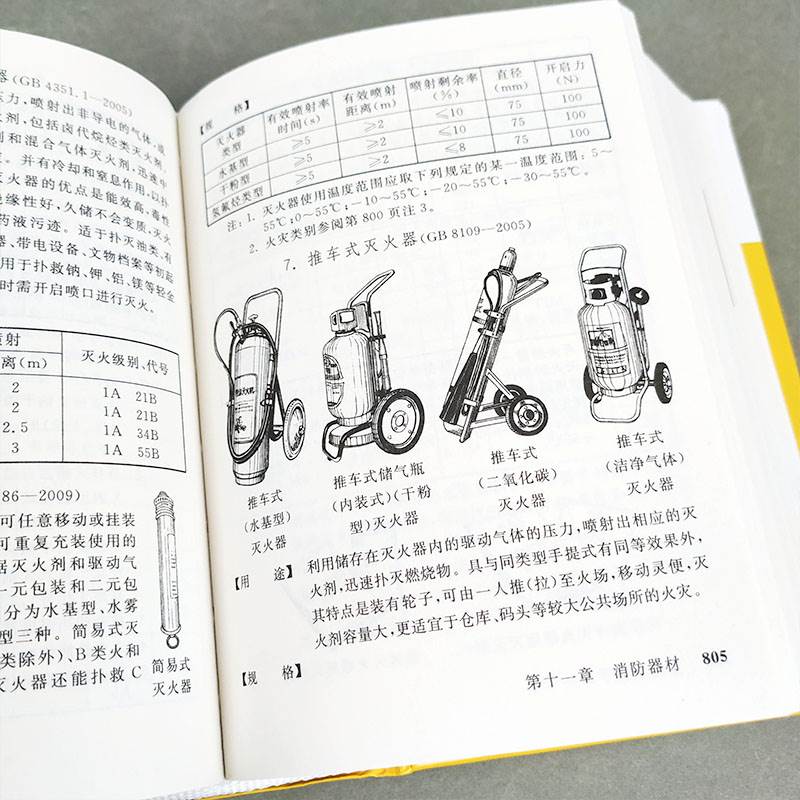 器(GB 4351.1—2005)
压力,喷射出非导电的气体,或
火剂,包括卤代烷烃类灭火剂、
剂和混合气体灭火剂,迅速中
。并有冷却和窒息作用,以扑
灭火器的优点是能效高,毒性
绝缘性好,久储不会变质,灭火
药液污迹。适于扑灭油类、有
器、带电设备、文物档案等初起
用于扑救钠、钾、铝、镁等轻金
时需开启喷口进行灭火。
喷射
离(m) 灭火级别、代号
2 1A 21B
2 1A 21B
2.5 1A 34B
3 1A 55B
86—2009)
可任意移动或挂装
可重复充装使用的
据灭火剂和驱动气
一元包装和二元包
分为水基型、水雾
型三种。简易式灭
类除外)、B类火和
灭火器还能扑救C
简易式
灭火器
【规 格】
灭火器类型 有效喷射率时间(s) 有效喷射距离(m) 喷射剩余率(%) 直径(mm) 开启力(N)
水基型 ≥5 ≥2 ≤10 75 100
干粉型 ≥5 ≥2 ≤10 75 100
氢氟烃类型 ≥5 ≥2 ≤8 75 100
注:1. 灭火器使用温度范围应取下列规定的某一温度范围:5~
55℃;0~55℃;-10~55℃;-20~55℃;-30~55℃。
2. 火灾类别参阅第800页注3。
7. 推车式灭火器(GB 8109—2005)
推车式
(水基型)
灭火器
推车式储气瓶
(内装式)(干粉
型)灭火器
推车式
(二氧化碳)
灭火器
推车式
(洁净气体)
灭火器
【用 途】 利用储存在灭火器内的驱动气体的压力,喷射出相应的灭
火剂,迅速扑灭燃烧物。具与同类型手提式有同等效果外,
其特点是装有轮子,可由一人推(拉)至火场,移动灵便,灭
火剂容量大,更适宜于仓库、码头等较大公共场所的火灾。
【规 格】
第十一章 消防器材 805